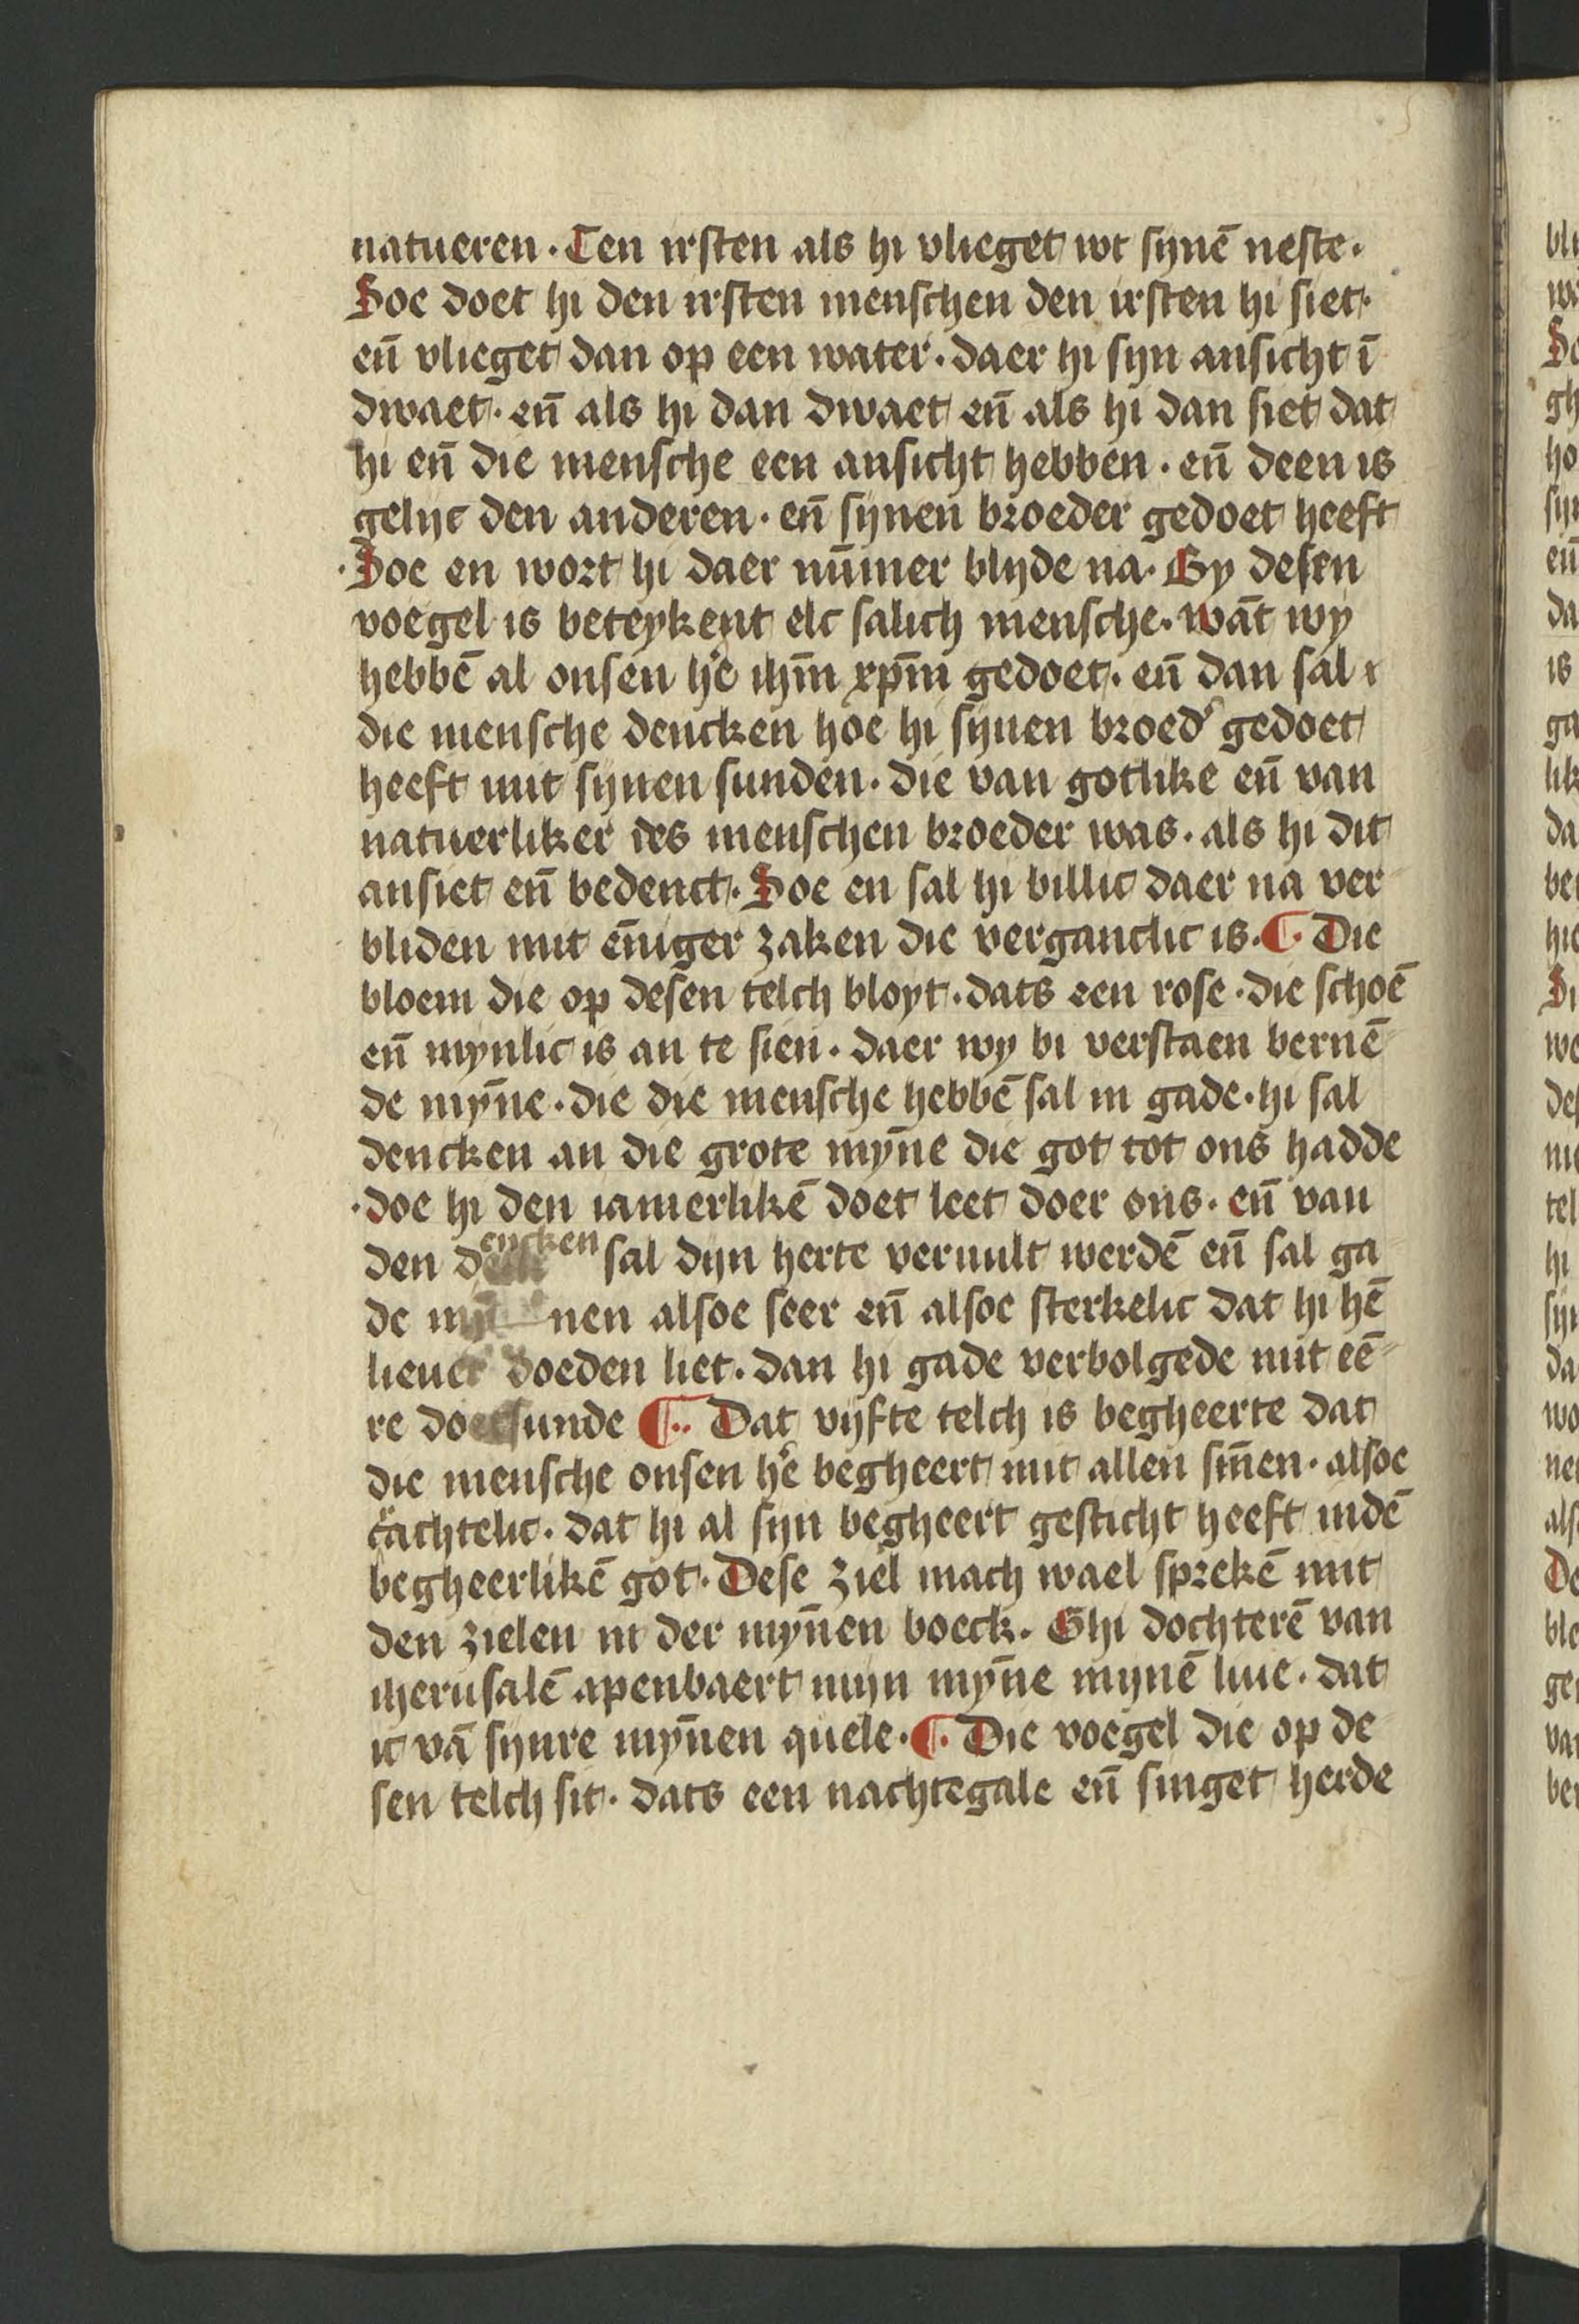 natueren · Ten irsten als hi vlieget wt synē neste ·
Soe doet hi den irsten menschen den irsten hi siet ·
eñ vlieget dan op een water · daer hi syn ansicht ī
dwaet · eñ als hi dan dwaet eñ als hi dan siet dat
hi eñ die mensche een ansicht hebben · eñ deen is
gelijc den anderen · eñ synen broeder gedoet heeft
· Soe en wort hi daer nūmer blyde na · By desen
voegel is beteykent elc salich mensche · wāt wy
hebbē al onsen he᷑ ihm̄ xpm̄ gedoet · eñ dan sal
die mensche dencken hoe hi synen broed᷑ gedoet
heeft mit synen sunden · die van gotlike eñ van
natuerliker des menschen broeder was · als hi dit
ansiet eñ bedenct · Soe en sal hi billic daer na ver
bliden mit en̄iger zaken die verganclic is · ¶ · Die
bloem die op desen telch bloyt · dats een rose · die schoē
eñ mynlic is an te sien · daer wy bi verstaen bernē
de myn̄e · die die mensche hebbē sal in gade · hi sal
dencken an die grote myn̄e die got tot ons hadde
· doe hi den iamerlikē doet leet doer ons · eñ van
den dencken sal dyn herte veruult werdē eñ sal ga
de mynnen alsoe seer eñ alsoe sterkelic dat hi hē
lieuer doeden liet · dan hi gade verbolgede mit eē
re doetsunde ¶ ·· Dat vijfte telch is begheerte dat
die mensche onsen he᷑ begheert mit allen sin̄en · alsoe
cᷓachtelic · dat hi al syn begheert gesticht heeft indē
begheerlikē got · Dese ziel mach wael sprekē mit
den zielen in der myn̄en boeck · Ghi dochterē van
iherusalē apenbaert myn myn̄e mynē liue · dat
ic vā synre myn̄en quele · ¶ · Die voegel die op de
sen telch sit · dats een nachtegale eñ singet herde